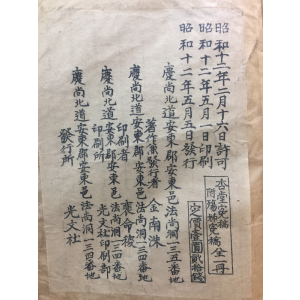 昭和十二年二月十六日許可
昭和十二年五月一日印刷
昭和十二年五月五日發行
杏堂安稿
附陽林安稿 全一冊
定價壹圓貳拾錢
慶尚北道安東郡安東邑法尚洞一三五番地
著作兼發行者 金南洙
慶尚北道安東郡安東邑法尚洞一三四番地
印刷者
慶尚北道安東郡安東邑法尚洞一三四番地
印刷所 光文社印刷部
慶尚北道安東郡安東邑法尚洞一三四番地
發行所 光文社